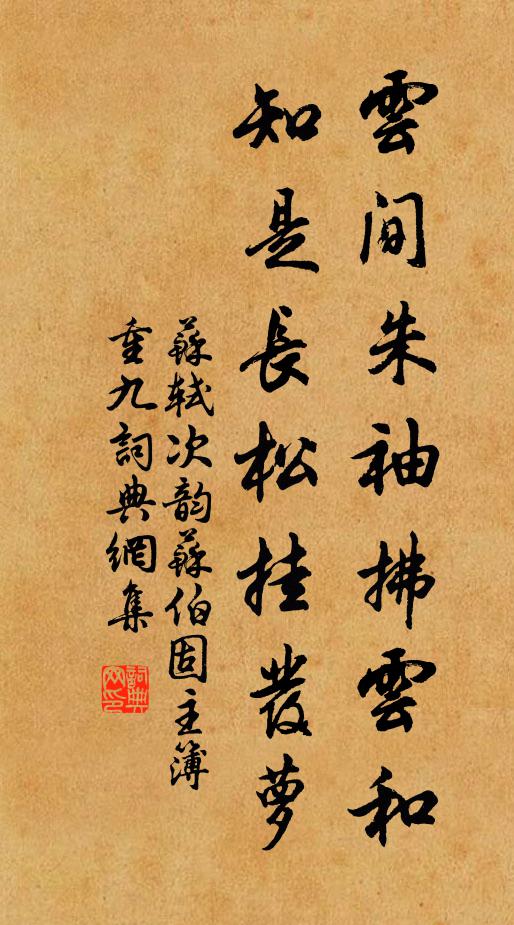 雲間朱袖拂雲和
知是長松挂發夢
蘇軾次韵蘇伯固主簿
重九詞典網集
詞典
网印